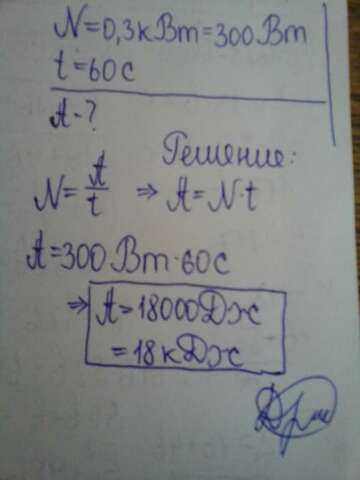 N=0,3кВт=300Вт
t=60с
A-?
Решение:
N=A/t ⇒ A=N·t
A=300Вт·60с
⇒ A=18000Дж
=18кДж